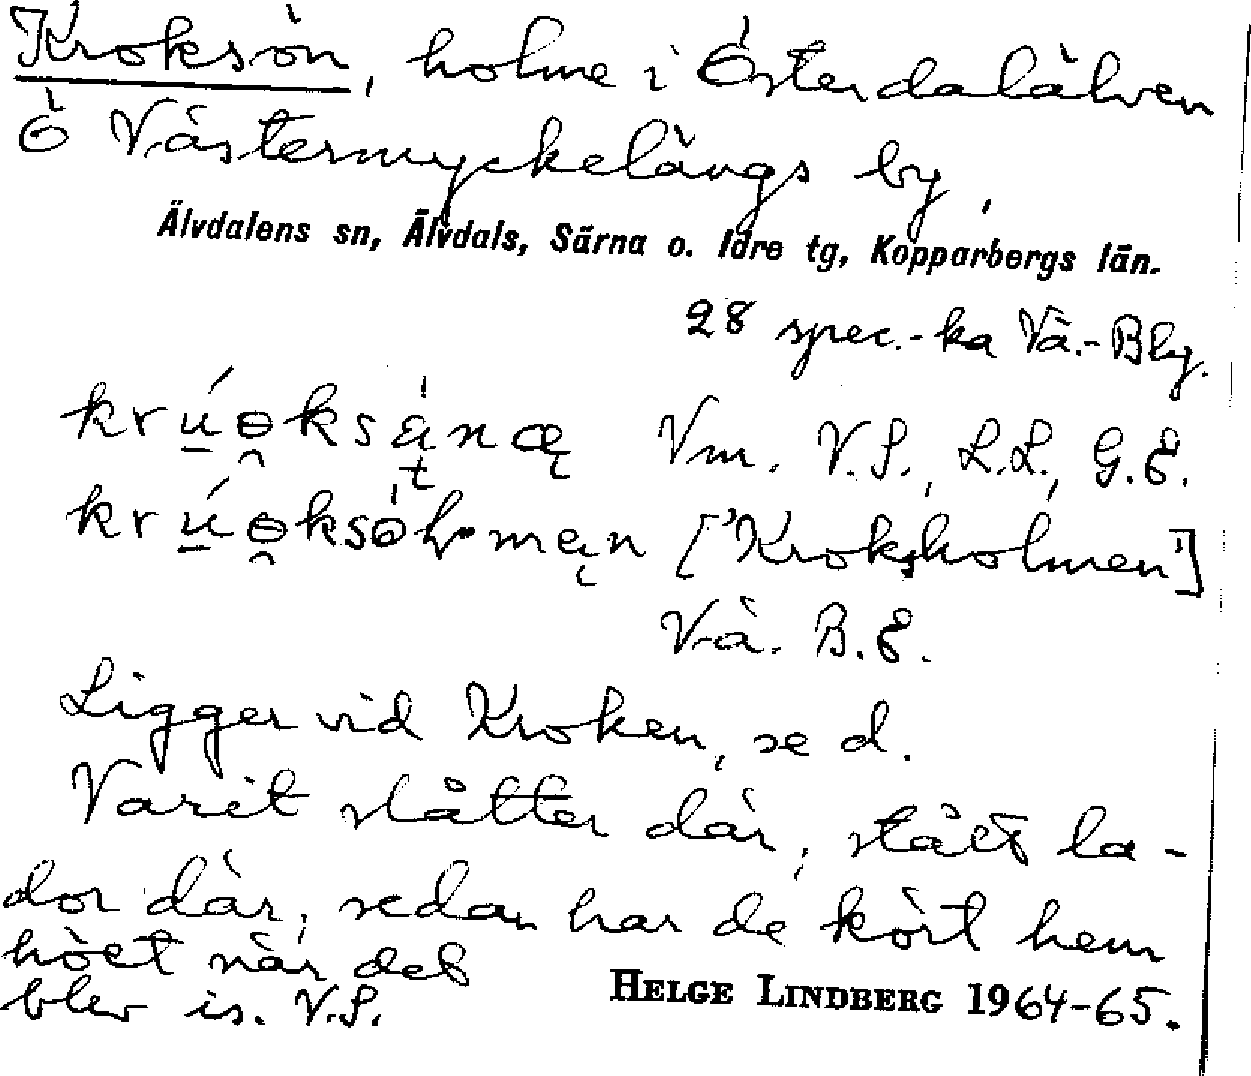 Kroksön, holme i Österdalälven
Ö Västermyckelängs by,
Älvdalens sn, Älvdals, Särna o. Idre tg, Kopparbergs län.
28 spec.-ka Vä.-Bly.
Vm. V.S., L.L., G.E.
['Kroksholmen']
Vä. B.E.
Ligger vid Kroken, se d.
Varit slåtter där, stått la-
dor där, sedan har de kört hem
höet när det
blev is. V.S.
HELGE LINDBERG 1964-65.